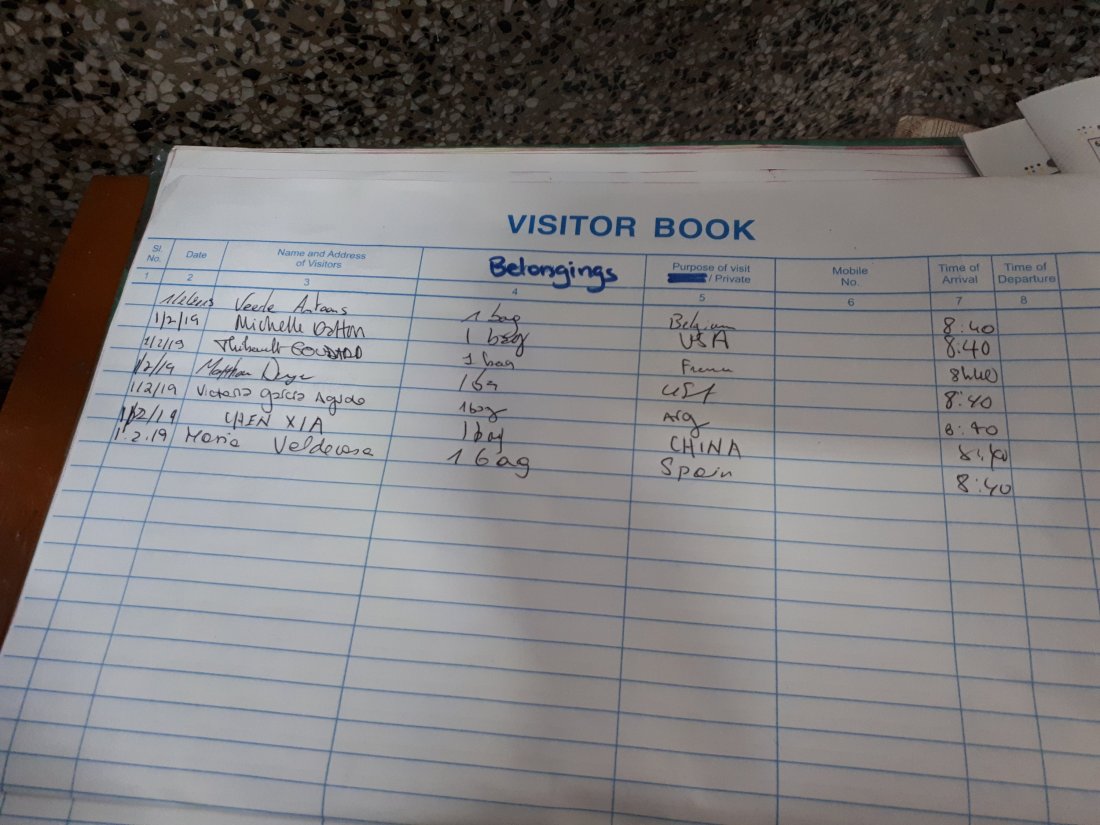 VISITOR BOOK
Sl. No. Date Name and Address of Visitors Belongings Purpose of visit / Private Mobile No. Time of Arrival Time of Departure
1 2 3 4 5 6 7 8
Veerle 1 bag Belgium 8:40
1/2/19 Michelle 1 bag USA 8:40
1/2/19 Thibault 1 bag France 8h40
1/2/19 Matthew 1 bag USA 8:40
1/2/19 Victoria garcia Agudo 1 bag Arg 8:40
1/2/19 CHEN XIA 1 bag CHINA 8:40
1.2.19 Maria 1 bag Spain 8:40